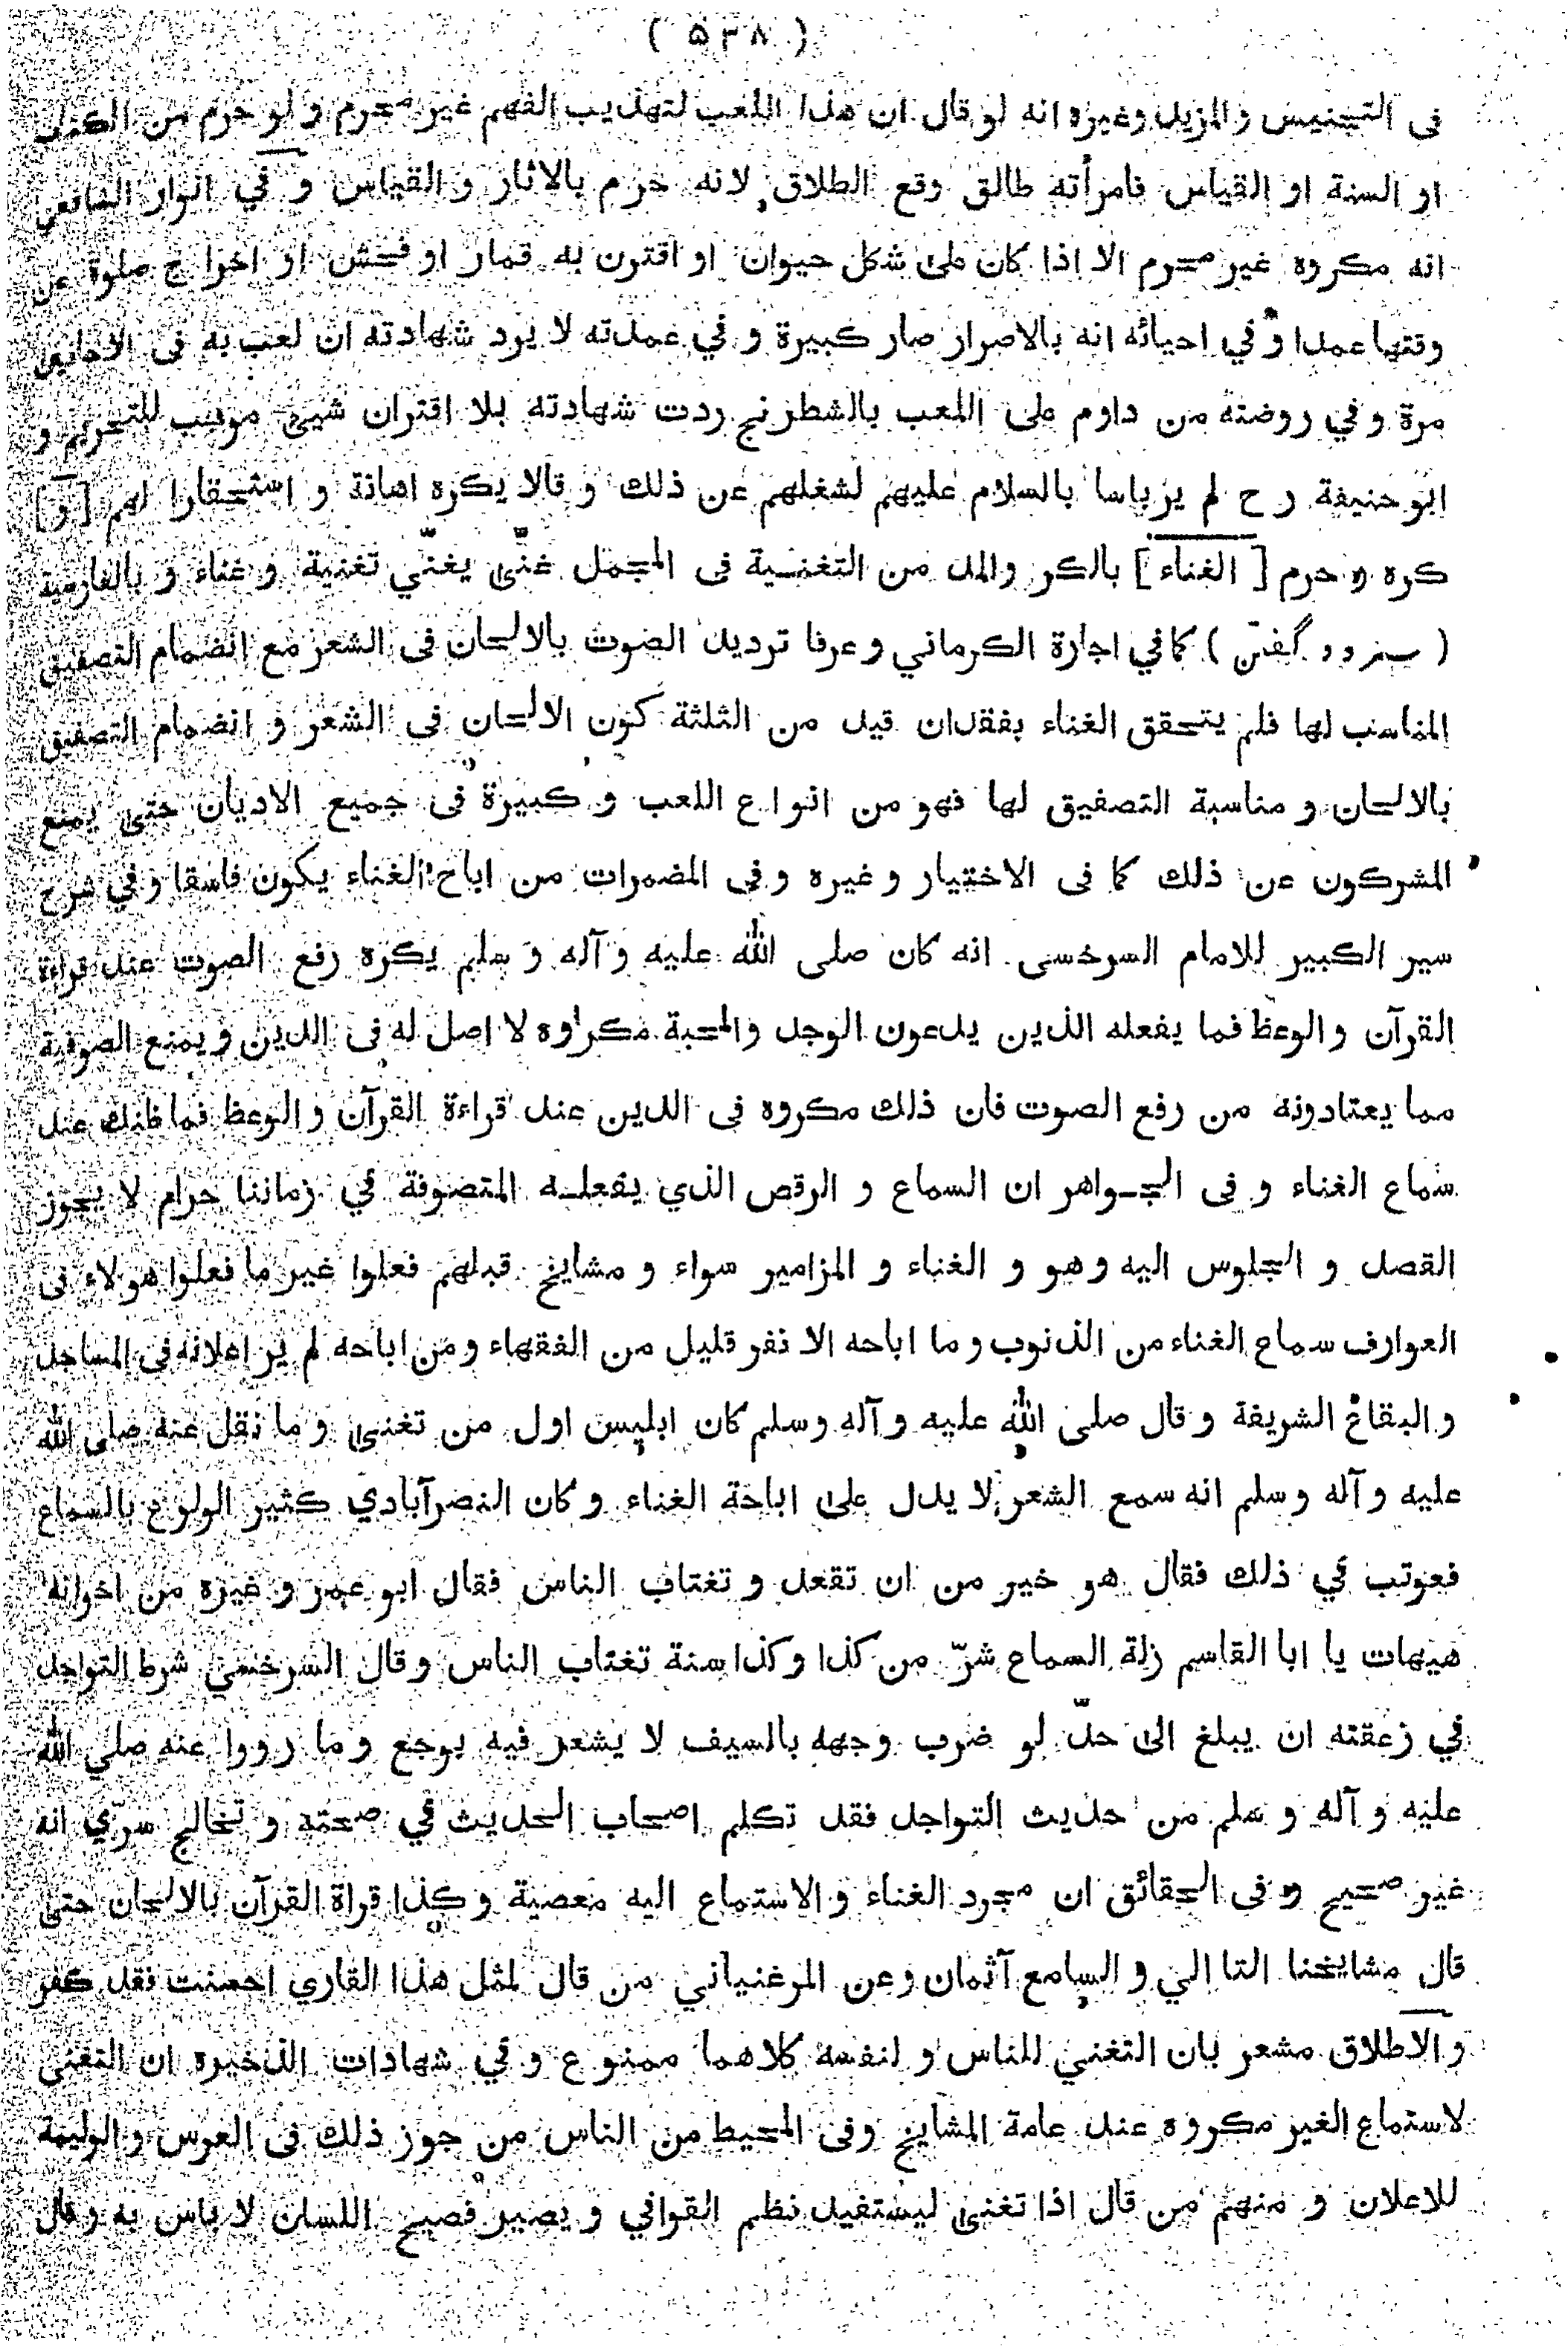 ( ۵۳۸ )
فى التجنيس و المزيد وغيره انه لو قال ان هذا اللعب لتهذيب الفهم غير محرم و لو حرم من الكتاب
او السنة او القياس فامرأته طالق وقع الطلاق لانه حرم بالاثار و القياس و في انوار الشافعي
انه مكروه غير محرم الا اذا كان على شكل حيوان او اقترن به قمار او فحش او اخراج صلوة عن
وقتها عمدا و في احيائه انه بالاصرار صار كبيرة و في عمدته لا يرد شهادته ان لعب به فى الاحايين
مرة و في روضته من داوم على اللعب بالشطرنج ردت شهادته بلا اقتران شيئ موجب للتحريم و
ابو حنيفة رح لم ير باسا بالسلام عليهم لشغلهم عن ذلك و قالا يكره اهانة و استحقارا لهم [ و ]
كره و حرم [ الغناء ] بالكر والمد من التغنية فى المجمل غنّى يغنّي تغنية و غناء و بالفارسية
( سرود گفتن ) كما في اجارة الكرماني و عرفا ترديد الصوت بالالحان فى الشعر مع انضمام التصفيق
المناسب لها فلم يتحقق الغناء بفقدان قيد من الثلثة كون الالحان فى الشعر و انضمام التصفيق
بالالحان و مناسبة التصفيق لها فهو من انواع اللعب و كبيرة فى جميع الاديان حتى يمنع
المشركون عن ذلك كما فى الاختيار و غيره و فى المضمرات من اباح الغناء يكون فاسقا و في شرح
سير الكبير للامام السرخسى انه كان صلى الله عليه و آله و سلم يكره رفع الصوت عند قراءة
القرآن و الوعظ فما يفعله الذين يدعون الوجد والمحبة مكروه لا اصل له فى الدين و يمنع الصوفية
مما يعتادونه من رفع الصوت فان ذلك مكروه فى الدين عند قراءة القرآن و الوعظ فما ظنك عند
سماع الغناء و فى الجواهر ان السماع و الرقص الذي يفعله المتصوفة في زماننا حرام لا يجوز
القصد و الجلوس اليه وهو و الغناء و المزامير سواء و مشايخ قبلهم فعلوا غير ما فعلوا هولاء فى
العوارف سماع الغناء من الذنوب و ما اباحه الا نفر قليل من الفقهاء و من اباحه لم ير اعلانه فى المساجد
و البقاع الشريفة و قال صلى الله عليه و آله وسلم كان ابليس اول من تغنى و ما نقل عنه صلى الله
عليه و آله وسلم انه سمع الشعر لا يدل على اباحة الغناء و كان النصرآبادي كثير الولوع بالسماع
فعوتب في ذلك فقال هو خير من ان تقعد و تغتاب الناس فقال ابو عمر و غيره من اخوانه
هيهات يا ابا القاسم زلة السماع شرّ من كذا و كذا سنة تغتاب الناس و قال السرخسي شرط التواجد
في زعقته ان يبلغ الى حدّ لو ضرب وجهه بالسيف لا يشعر فيه بوجع و ما رووا عنه صلي الله
عليه و آله و سلم من حديث التواجد فقد تكلم اصحاب الحديث في صحته و تخالج سرّي انه
غير صحيح و فى الحقائق ان مجرد الغناء و الاستماع اليه معصية و كذا قراة القرآن بالالحان حتى
قال مشايخنا التا الي و السامع آثمان و عن المرغنياني من قال لمثل هذا القاري احسنت فقد كفر
و الاطلاق مشعر بان التغني للناس و لنفسه كلاهما ممنوع و في شهادات الذخيره ان التغني
لاستماع الغير مكروه عند عامة المشايخ وفى المحيط من الناس من جوز ذلك فى العرس و الوليمة
للاعلان و منهم من قال اذا تغنى ليستفيد نظم القوافي و يصير فصيح اللسان لا باس به و قال